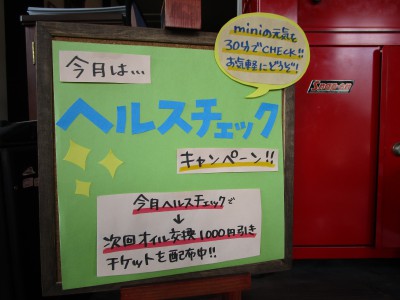 miniの元気を
30分でCHECK!!
お気軽にどうぞ!
今月は…
ヘルスチェック
キャンペーン!!
今月ヘルスチェックで
↓
次回オイル交換1000円引き
チケットを配布中!!